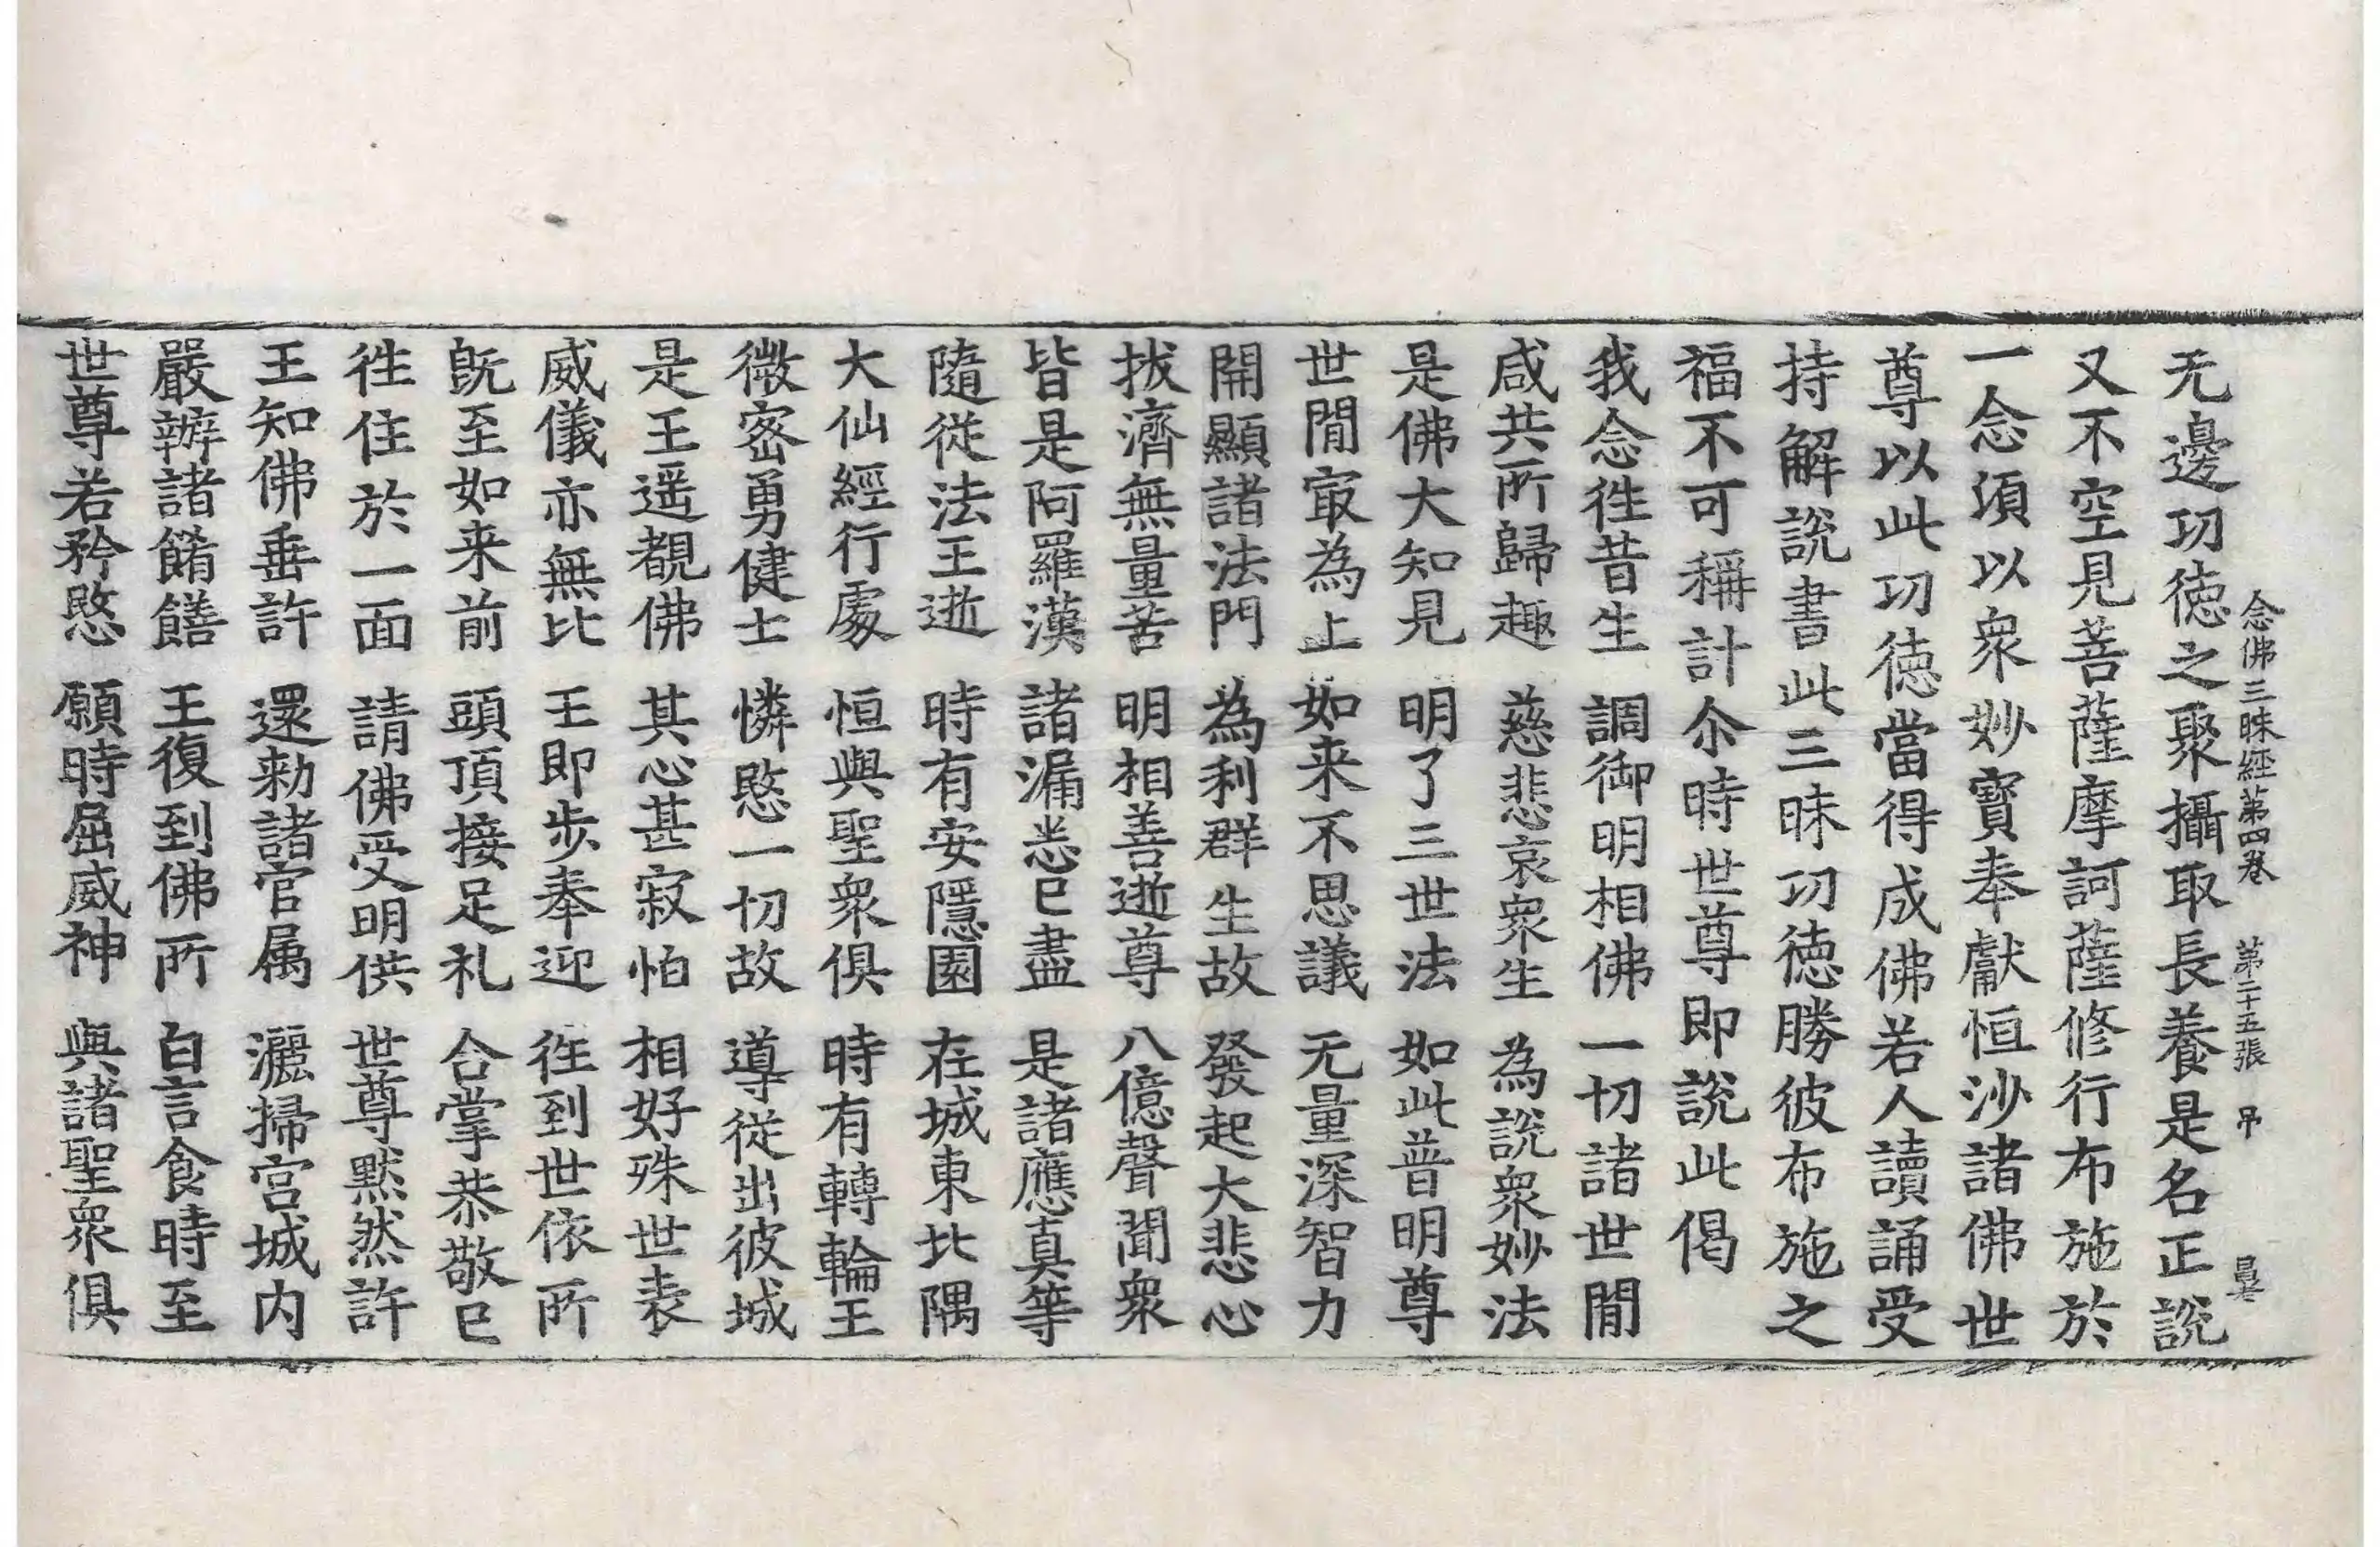 念佛三昧經第四卷 第二十五張 吊
无邊功德之聚攝取長養是名正說
又不空見菩薩摩訶薩修行布施於
一念湏以衆妙寶奉獻恒沙諸佛世
尊以此功德當得成佛若人讀誦受
持解說書此三昧功德勝彼布施之
福不可稱計尒時世尊即說此偈
我念徃昔生 調御明相佛 一切諸世閒
咸共所歸趣 慈悲哀衆生 為說衆妙法
是佛大知見 明了三世法 如此普明尊
世閒㝡為上 如来不思議 无量深智力
開顯諸法門 為利群生故 發起大悲心
拔濟無量苦 明相善逝尊 八億聲聞衆
皆是阿羅漢 諸漏悉已盡 是諸應真等
隨從法王逝 時有安隱園 在城東北隅
大仙經行處 恒與聖衆俱 時有轉輪王
微密勇健士 憐愍一切故 導從出彼城
是王遥覩佛 其心甚寂怕 相好殊世表
威儀亦無比 王即步奉迎 徃到世依所
旣至如来前 頭頂接足礼 合掌恭敬已
徃住於一面 請佛受明供 世尊黙然許
王知佛垂許 還勑諸官属 灑掃宮城内
嚴辦諸餚饍 王復到佛所 白言食時至
世尊若矜愍 願時屈威神 與諸聖衆俱